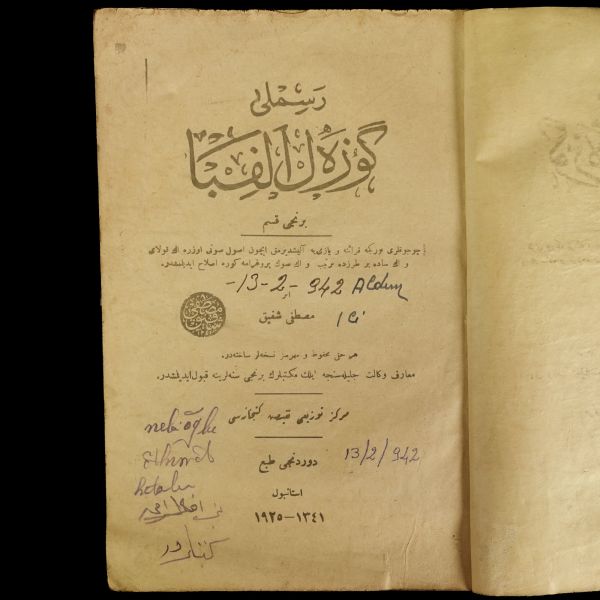 رسملی
گوزەل الفبا
برنجی قسم
چوجوقلری تورکجه قرائته و یازی‌یه آلیشدیرمق ایچون اصول صوتی اوزره اڭ قولای
و اڭ ساده بر طرزده ترتیب و اڭ صوڭ پروغرامه کوره اصلاح ایدیلمشدر.
-13-2-942 Aldım
اثر
مصطفی شفیق
هر حق محفوظ و مهرسز نسخه‌لر ساخته‌در.
معارف وکالت جلیله‌سنجه ایلك مکتبلرك برنجی سنه‌لرینه قبول ایدیلمشدر.
مرکز توزیعی
دوردنجی طبع
13/2/942
استانبول
١٣٤١-١٩٢٥